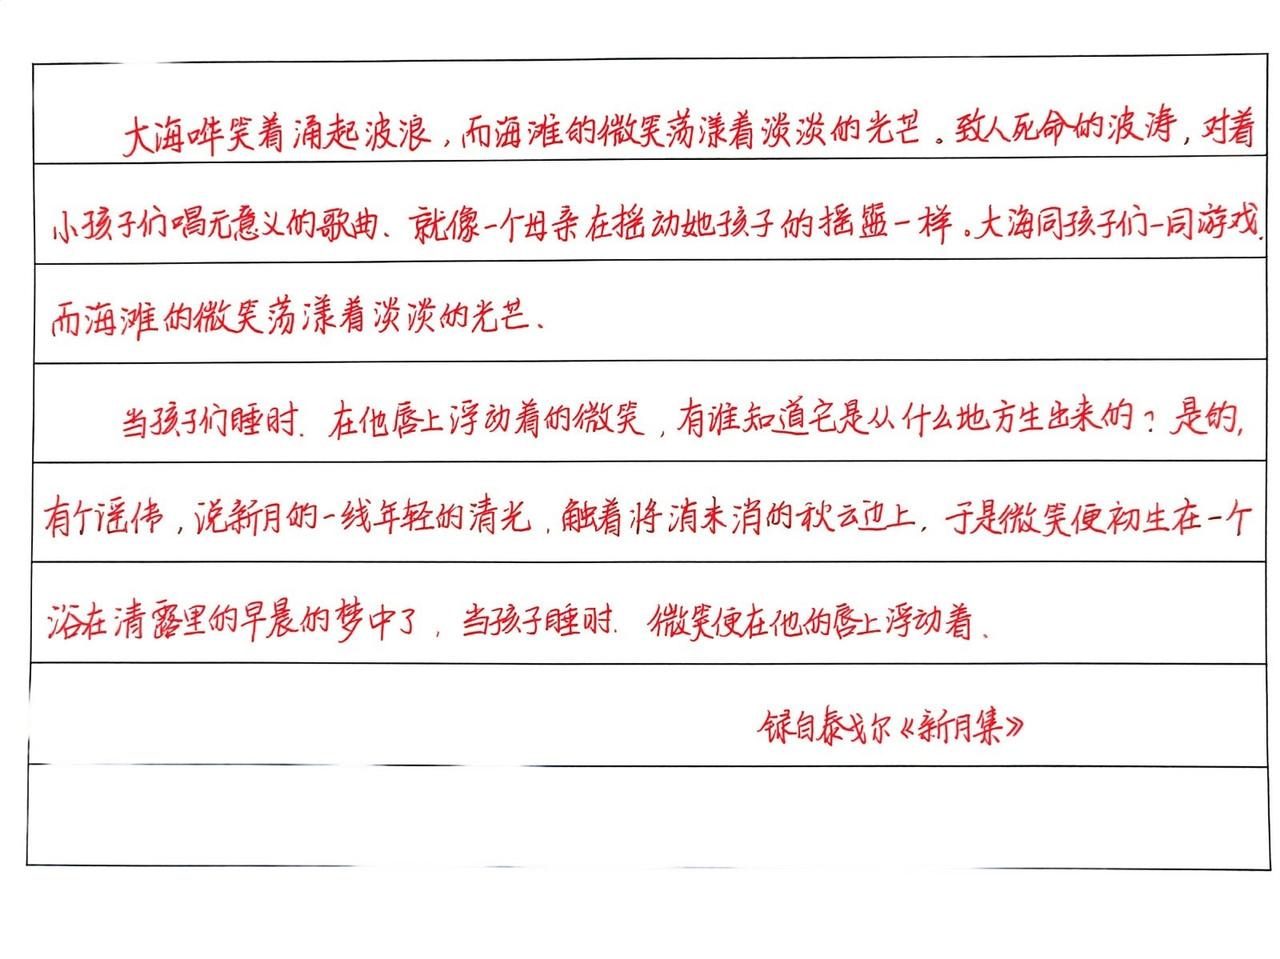 大海哗笑着涌起波浪,而海滩的微笑荡漾着淡淡的光芒。致人死命的波涛,对着
小孩子们唱无意义的歌曲、就像一个母亲在摇动她孩子的摇篮一样。大海同孩子们一同游戏,
而海滩的微笑荡漾着淡淡的光芒、
当孩子们睡时.在他唇上浮动着的微笑,有谁知道它是从什么地方生出来的?是的,
有个谣传,说新月的一线年轻的清光,触着将消未消的秋云边上,于是微笑便初生在一个
浴在清露里的早晨的梦中了,当孩子睡时.微笑便在他的唇上浮动着、
录自泰戈尔《新月集》